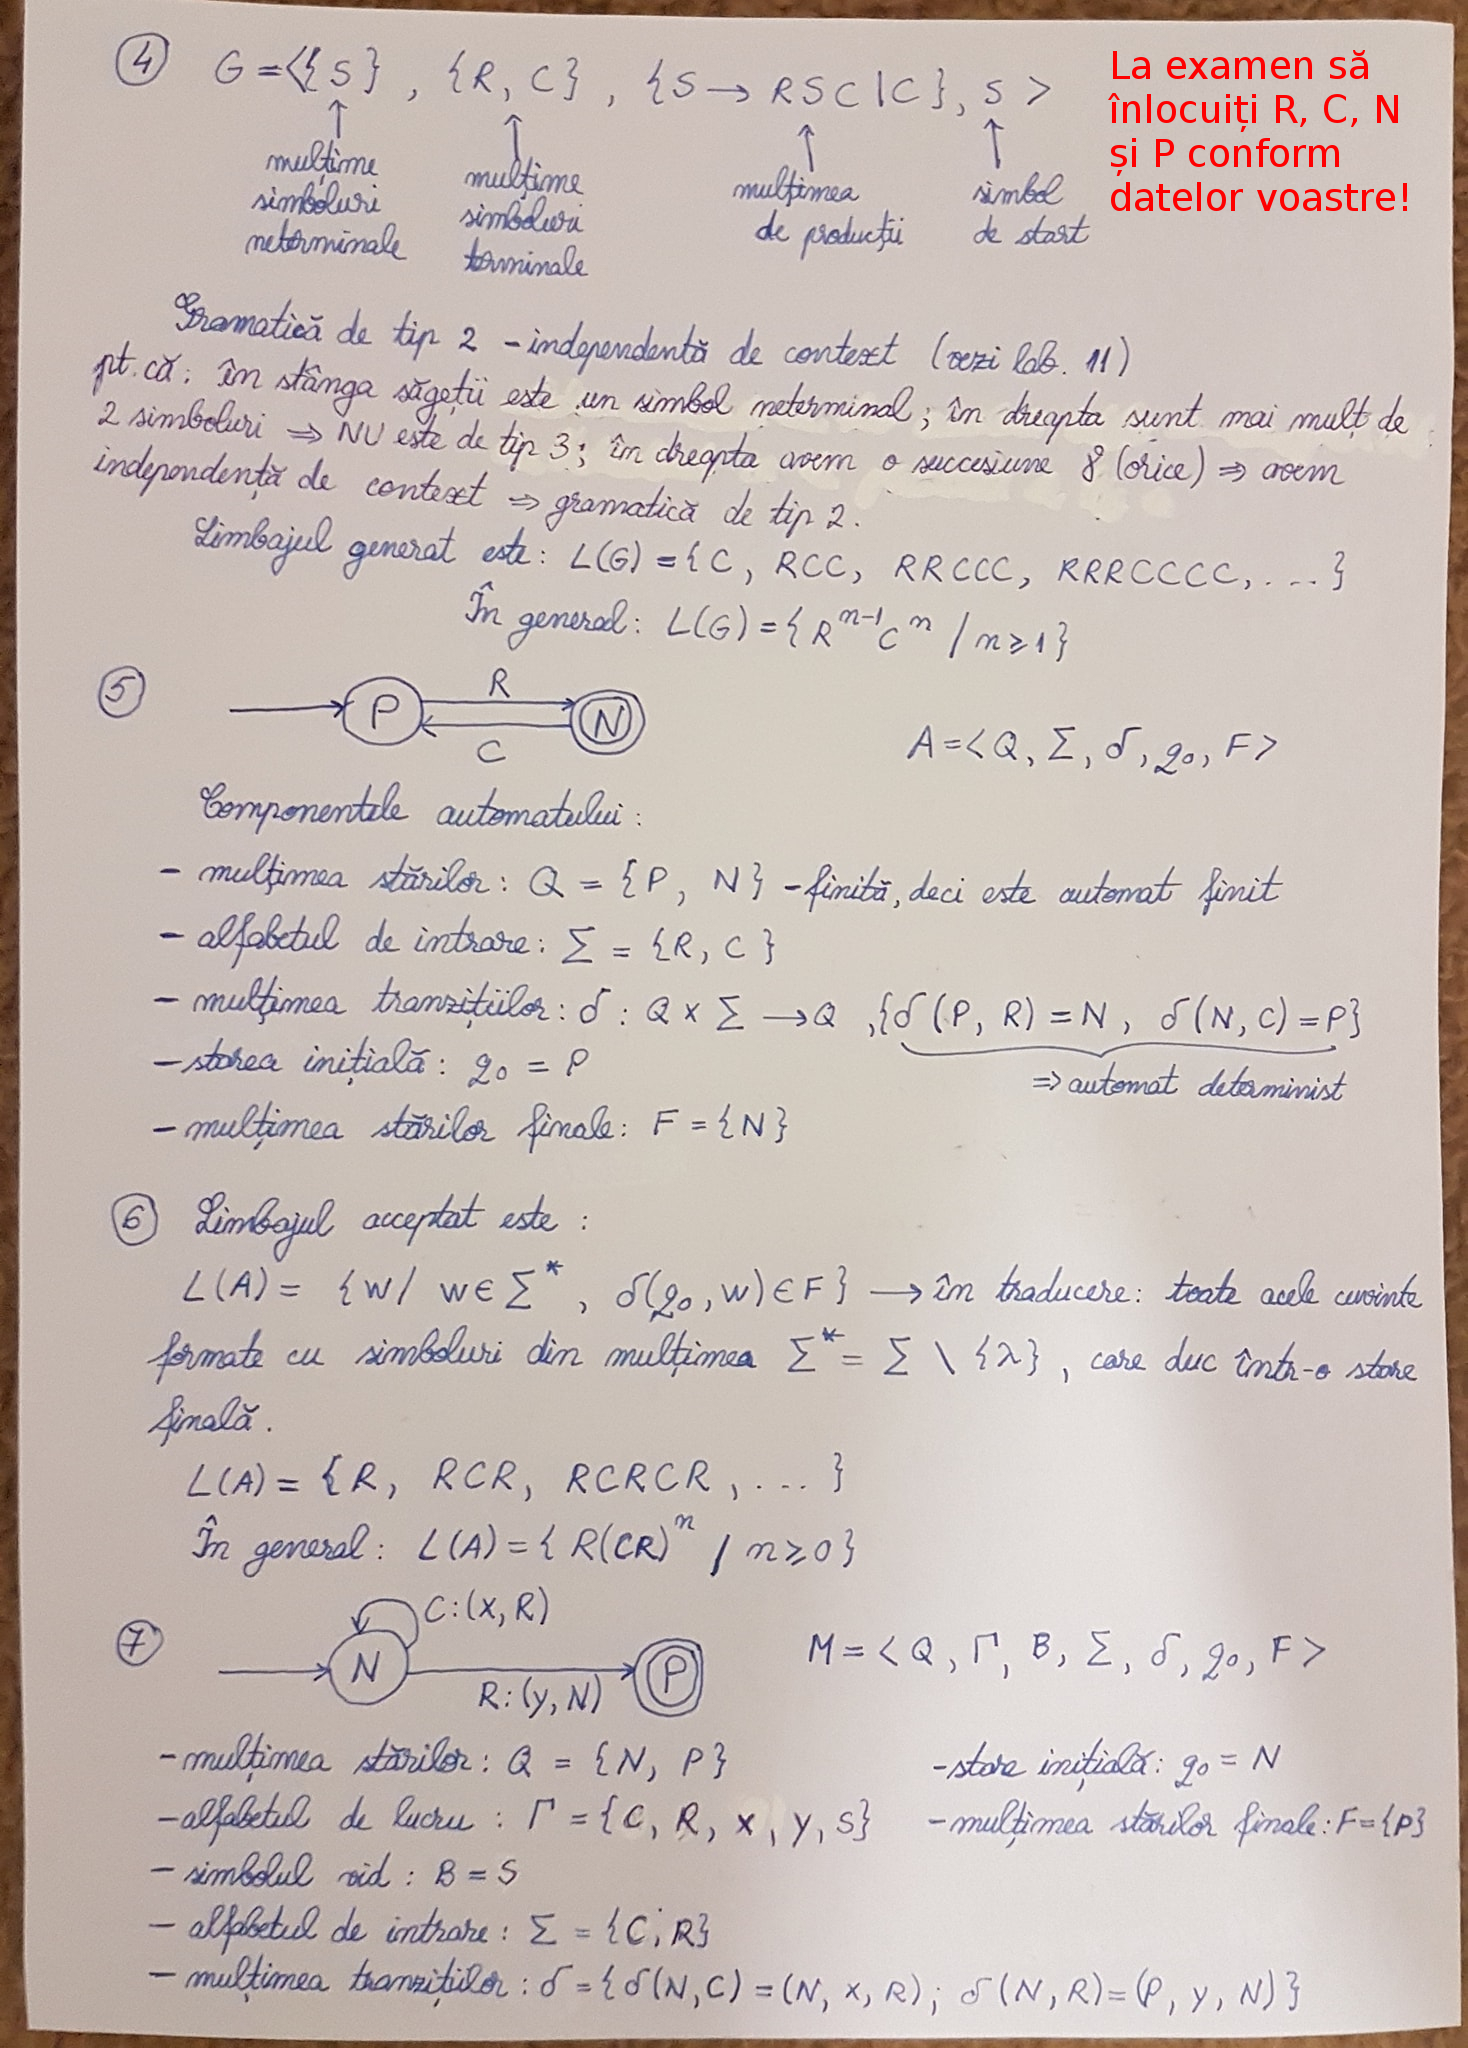 ④ G = <{S}, {R, C}, {S → RSC | C}, S >
La examen să
înlocuiți R, C, N
și P conform
datelor voastre!
↑ ↑ ↑ ↑
mulțime mulțime mulțimea simbol
simboluri simboluri de producții de start
neterminale terminale
Gramatică de tip 2 - independentă de context (vezi lab. 11)
pt. că: în stânga săgeții este un simbol neterminal; în dreapta sunt mai mult de
2 simboluri ⇒ NU este de tip 3; în dreapta avem o succesiune γ (orice) ⇒ avem
independență de context ⇒ gramatică de tip 2.
Limbajul generat este: L(G) = {C, RCC, RRCCC, RRRCCCC, ...}
În general: L(G) = {Rⁿ⁻¹Cⁿ / n ≥ 1}
⑤ → P R N C
A = <Q, Σ, δ, q₀, F>
Componentele automatului:
- mulțimea stărilor: Q = {P, N} - finită, deci este automat finit
- alfabetul de intrare: Σ = {R, C}
- mulțimea tranzițiilor: δ : Q × Σ → Q, {δ(P, R) = N, δ(N, C) = P}
⇒ automat determinist
- starea inițială: q₀ = P
- mulțimea stărilor finale: F = {N}
⑥ Limbajul acceptat este:
L(A) = {w / w ∈ Σ*, δ(q₀, w) ∈ F} → în traducere: toate acele cuvinte
formate cu simboluri din mulțimea Σ* = Σ \ {λ}, care duc într-o stare
finală.
L(A) = {R, RCR, RCRCR, ...}
În general: L(A) = {R(CR)ⁿ / n ≥ 0}
⑦ → N C:(x, R) R:(y, N) P
M = <Q, Γ, B, Σ, δ, q₀, F>
- mulțimea stărilor: Q = {N, P} - stare inițială: q₀ = N
- alfabetul de lucru: Γ = {C, R, x, y, S} - mulțimea stărilor finale: F = {P}
- simbolul vid: B = S
- alfabetul de intrare: Σ = {C; R}
- mulțimea tranzițiilor: δ = {δ(N, C) = (N, x, R); δ(N, R) = (P, y, N)}